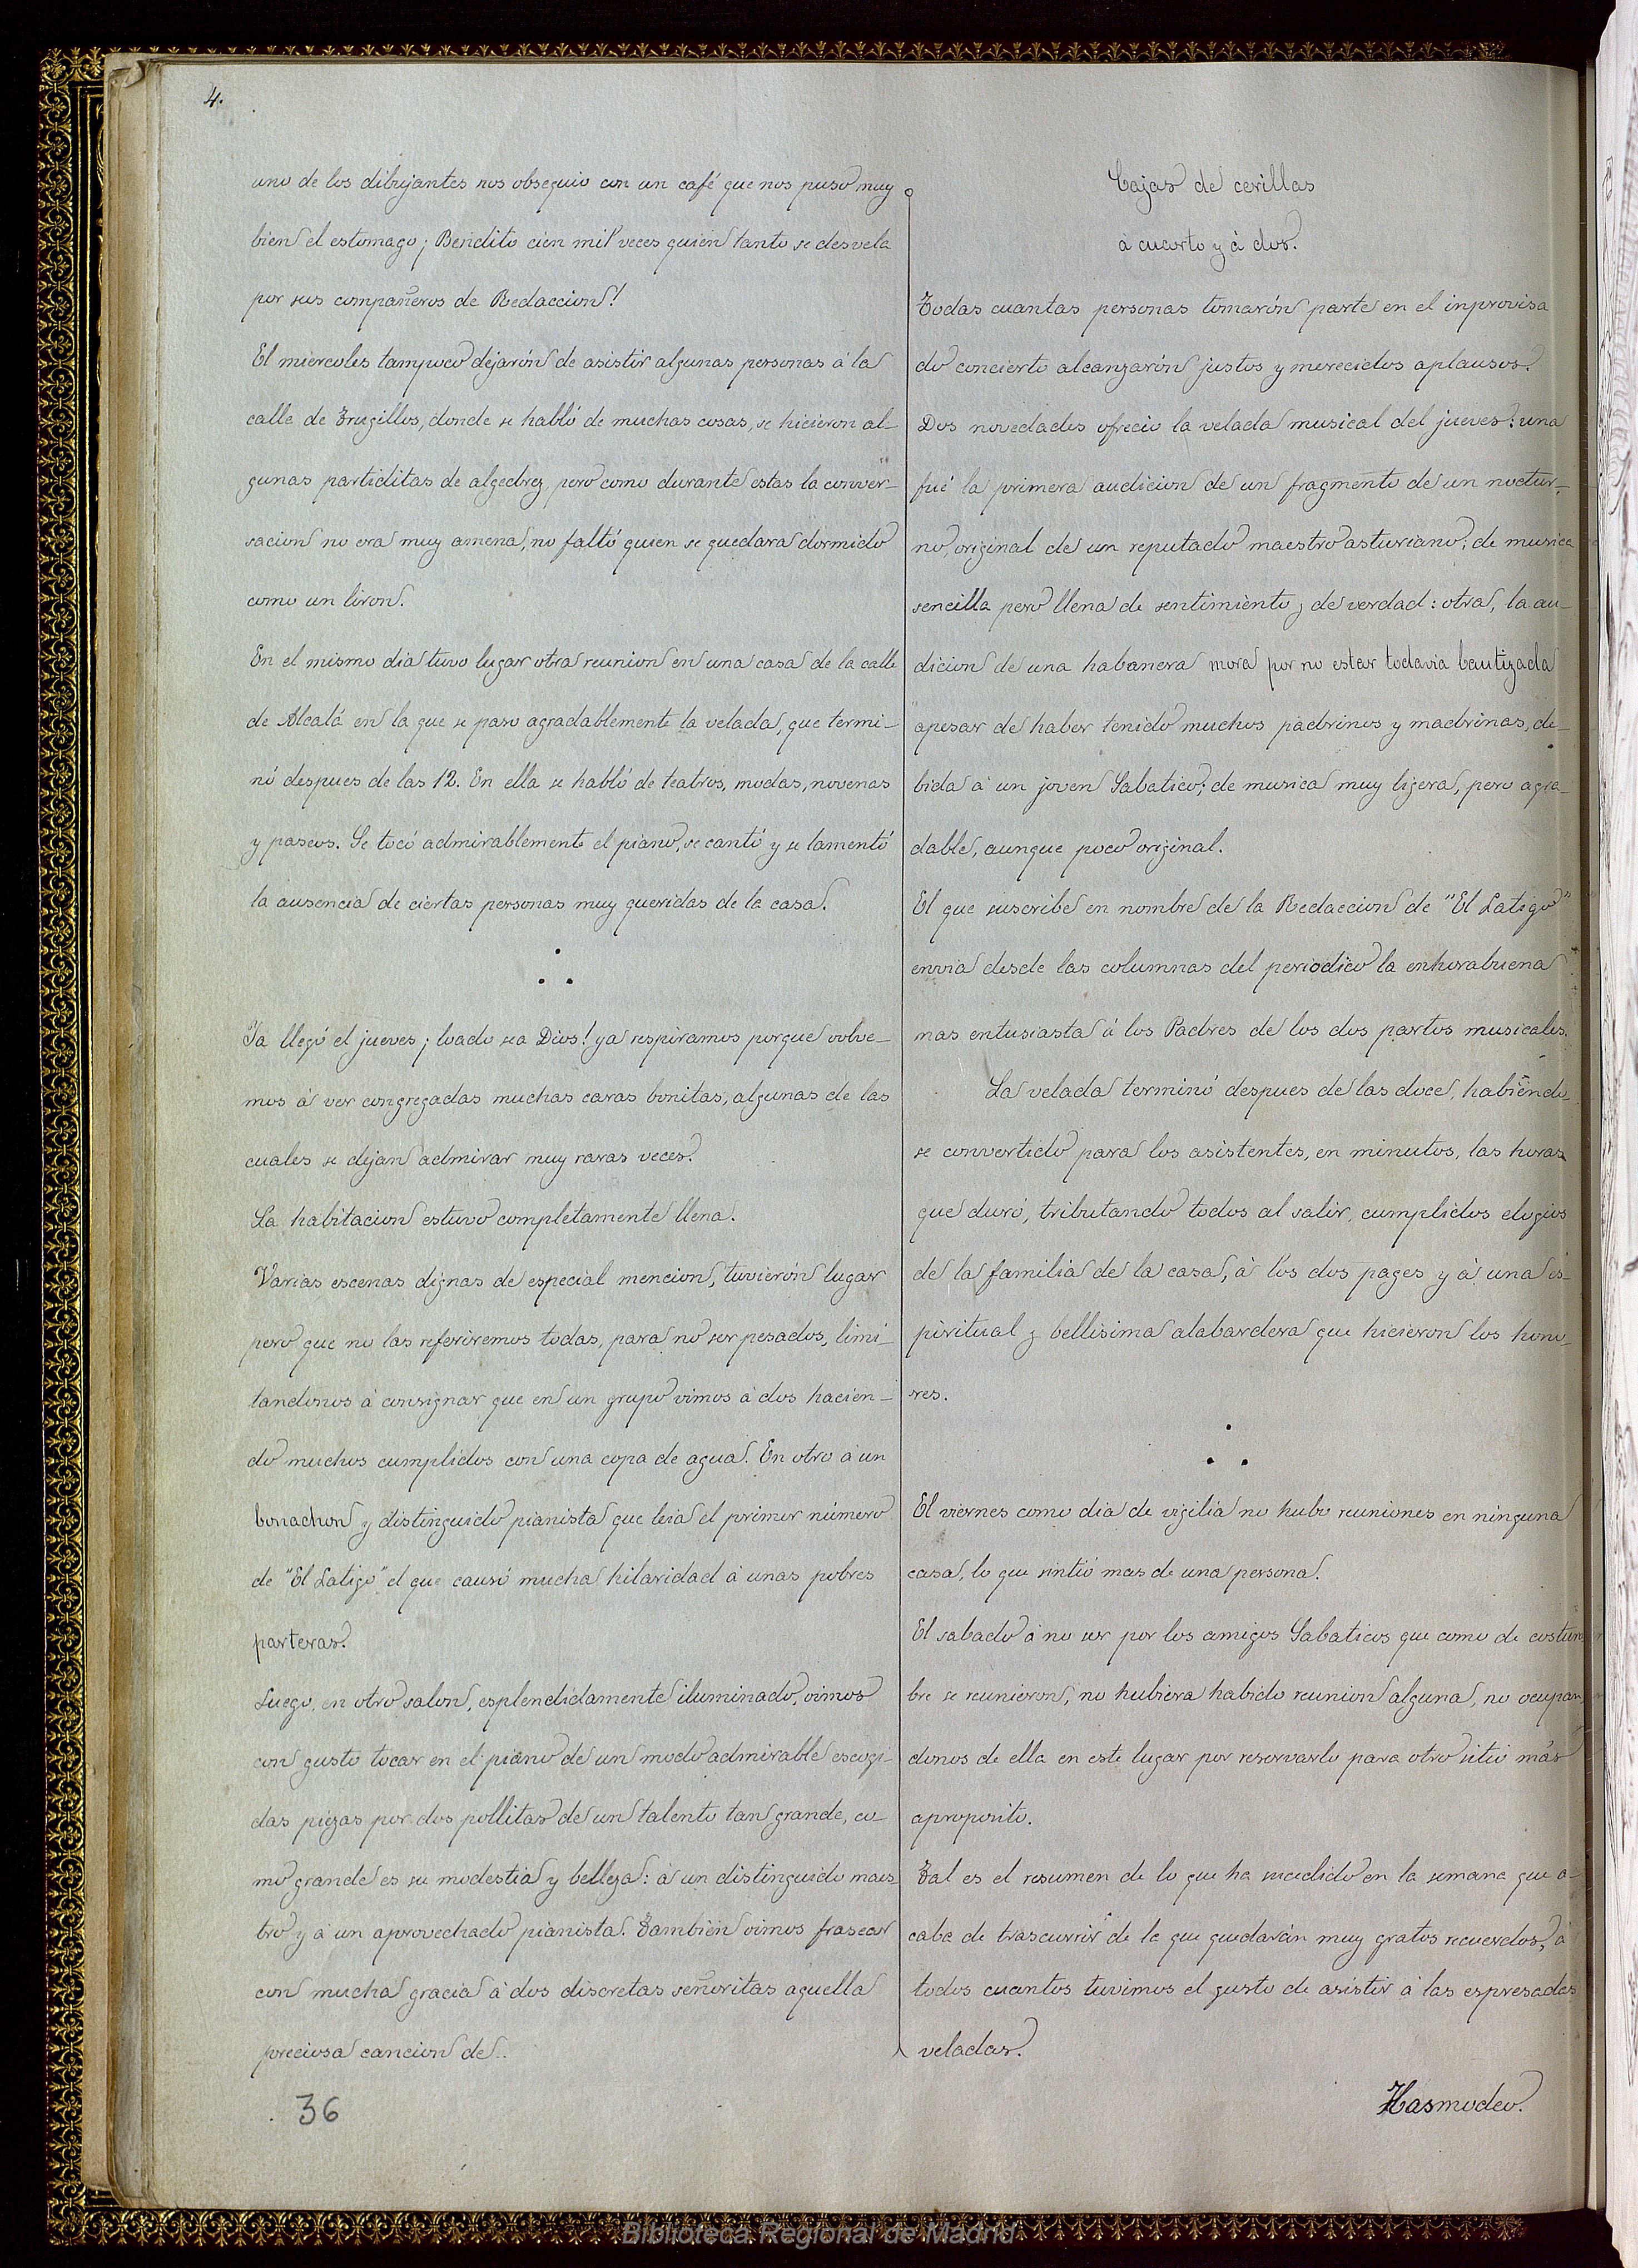 4.
uno de los dibujantes nos obsequio con un café que nos puso muy
bien el estomago; Bendito cien mil veces quien tanto se desvela
por sus compañeros de Redaccion!
El miercoles tampoco dejarón de asistir algunas personas á la
calle de Trugillos, donde se habló de muchas cosas, se hicieron al-
gunas partiditas de algedrez, pero como durante estas la conver-
sacion no era muy amena, no faltó quien se quedara dormido
como un liron.
En el mismo dia tuvo lugar otra reunion en una casa de la calle
de Alcalá en la que se paso agradablemente la velada, que termi-
nó despues de las 12. En ella se habló de teatros, modas, novenas
y paseos. Se tocó admirablemente el piano, se cantó y se lamentó
la ausencia de ciertas personas muy queridas de la casa.
Ya llegó el jueves; loado sea Dios! ya respiramos porque volve-
mos á ver congregadas muchas caras bonitas, algunas de las
cuales se dejan admirar muy raras veces.
La habitacion estuvo completamente llena.
Varias escenas dignas de especial mencion, tuvierón lugar
pero que no las referiremos todas, para no ser pesados, limi-
tandonos á consignar que en un grupo vimos á dos hacien-
do muchos cumplidos con una copa de agua. En otro á un
bonachon y distinguido pianista que leia el primer número
de "El Latigo" el que causó mucha hilaridad á unas pobres
parteras.
Luego, en otro salon, esplendidamente iluminado, vimos
con gusto tocar en el piano de un modo admirable escogi-
das piezas por dos pollitas de un talento tan grande, co-
mo grande es su modestia y belleza: á un distinguido maes
tro y á un aprovechado pianista. Tambien vimos frasear
con mucha gracia á dos discretas señoritas aquella
preciosa cancion de..
36
Cajas de cerillas
á cuarto y á dos.
Todas cuantas personas tomarón parte en el inprovisa
do concierto alcanzarón justos y merecidos aplausos.
Dos novedades ofrecio la velada musical del jueves: una
fué la primera audicion de un fragmento de un noctur-
no, original de un reputado maestro asturiano; de musica
sencilla pero llena de sentimiento y de verdad: otra, la au-
dicion de una habanera mora por no estar todavia bautizada
apesar de haber tenido muchos padrinos y madrinas, de-
bida á un joven Sabatico; de musica muy ligera, pero agra-
dable, aunque poco original.
El que suscribe en nombre de la Redaccion de "El Latigo"
envia desde las columnas del periodico la enhorabuena
mas entusiasta á los Padres de los dos partos musicales.
La velada terminó despues de las doce, habiendo-
se convertido para los asistentes, en minutos, las horas
que duró, tributando todos al salir, cumplidos elogios
de la familia de la casa, á los dos pages y á una es-
piritual y bellisima alabardera que hicieron los hono-
res.
El viernes como dia de vigilia no hubo reuniones en ninguna
casa, lo que sintió mas de una persona.
El sabado á no ser por los amigos Sabaticos que como de costum
bre se reunieron, no hubiera habido reunion alguna, no ocupan
donos de ella en este lugar por reservarlo para otro sitio más
aproposito.
Tal es el resumen de lo que ha sucedido en la semana que a-
caba de trascurrir de la que quedarán muy gratos recuerdos, á
todos cuantos tuvimos el gusto de asistir á las espresadas
veladas.
Hasmodeo.
Biblioteca Regional de Madrid